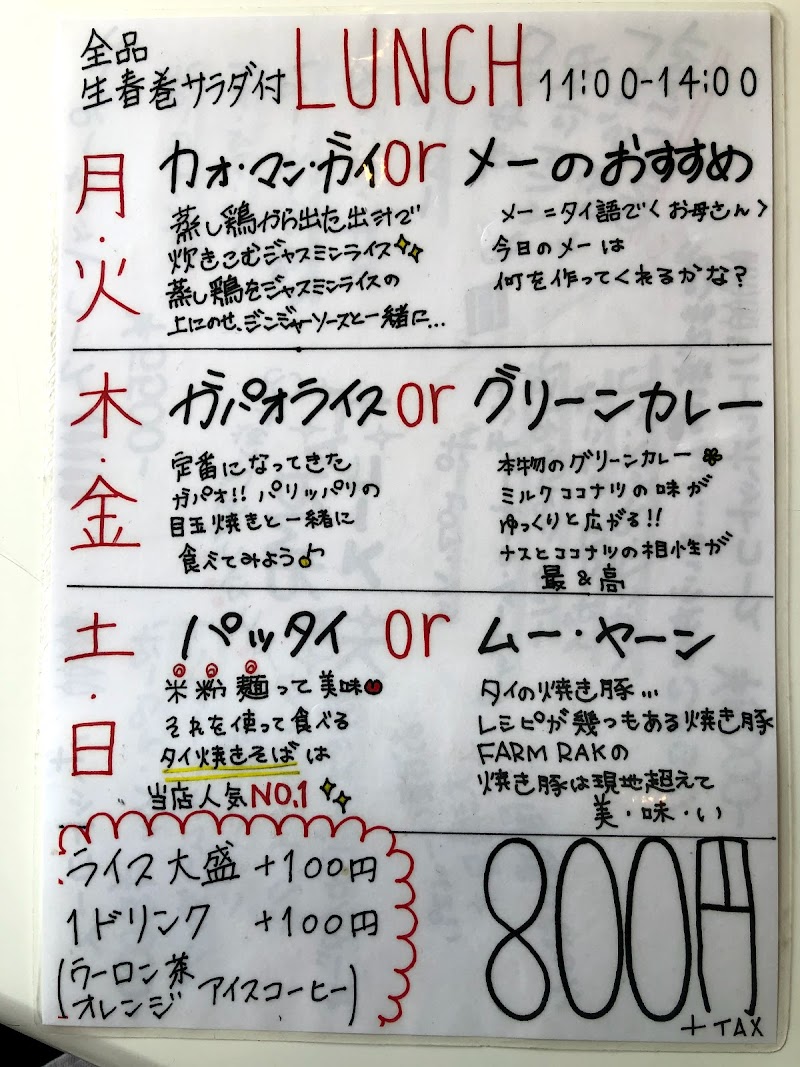 全品
生春巻サラダ付 LUNCH 11:00-14:00
月・火
カオ・マン・ガイ or メーのおすすめ
蒸し鶏から出た出汁で
炊きこむジャスミンライス
蒸し鶏をジャスミンライスの
上にのせ、ジンジャーソースと一緒に…
メー=タイ語でくお母さん>
今日のメーは
何を作ってくれるかな?
木・金
ガパオライス or グリーンカレー
定番になってきた
ガパオ!! パリッパリの
目玉焼きと一緒に
食べてみよう♪
本物のグリーンカレー
ミルクココナツの味が
ゆっくりと広がる!!
ナスとココナツの相性が
最&高
土・日
パッタイ or ムー・ヤーン
米粉麺って美味
それを使って食べる
タイ焼きそばは
当店人気NO.1
タイの焼き豚…
レシピが幾つもある焼き豚
FARM RAKの
焼き豚は現地超えて
美・味・い
ライス大盛 +100円
1ドリンク +100円
(ウーロン茶
オレンジ アイスコーヒー)
800円
+TAX